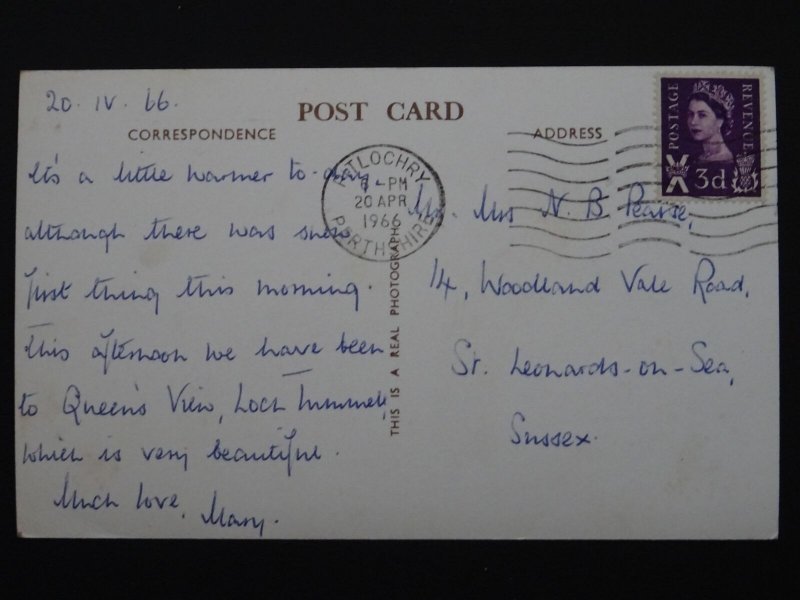 20. IV. 66.
POST CARD
CORRESPONDENCE
ADDRESS
It's a little warmer to-day
although there was snow
first thing this morning.
This afternoon we have been
to Queen's View, Loch Tummel,
which is very beautiful.
Much love,
Mary.
PITLOCHRY
6 - PM
20 APR
1966
PERTHSHIRE
THIS IS A REAL PHOTOGRAPH
POSTAGE
REVENUE
3d
Mrs N. B Pearse,
14, Woodland Vale Road,
St. Leonards-on-Sea,
Sussex.